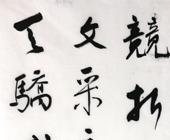 競折
文采
天驕